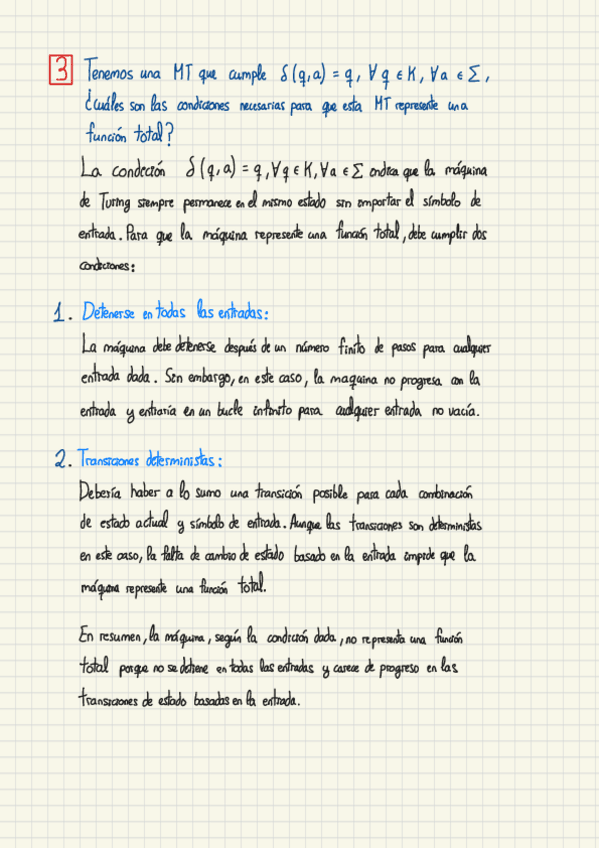 3 Tenemos una MT que cumple δ(q,a) = q, ∀ q ∈ K, ∀ a ∈ Σ,
¿Cuáles son las condiciones necesarias para que esta MT represente una
función total?
La condición δ(q,a) = q, ∀ q ∈ K, ∀ a ∈ Σ indica que la máquina
de Turing siempre permanece en el mismo estado sin importar el símbolo de
entrada. Para que la máquina represente una función total, debe cumplir dos
condiciones:
1. Detenerse en todas las entradas:
La máquina debe detenerse después de un número finito de pasos para cualquier
entrada dada. Sin embargo, en este caso, la maquina no progresa con la
entrada y entraría en un bucle infinito para cualquier entrada no vacía.
2. Transiciones deterministas:
Debería haber a lo sumo una transición posible para cada combinación
de estado actual y símbolo de entrada. Aunque las transiciones son deterministas
en este caso, la falta de cambio de estado basado en la entrada impide que la
máquina represente una función total.
En resumen, la máquina, según la condición dada, no representa una función
total porque no se detiene en todas las entradas y carece de progreso en las
transiciones de estado basadas en la entrada.